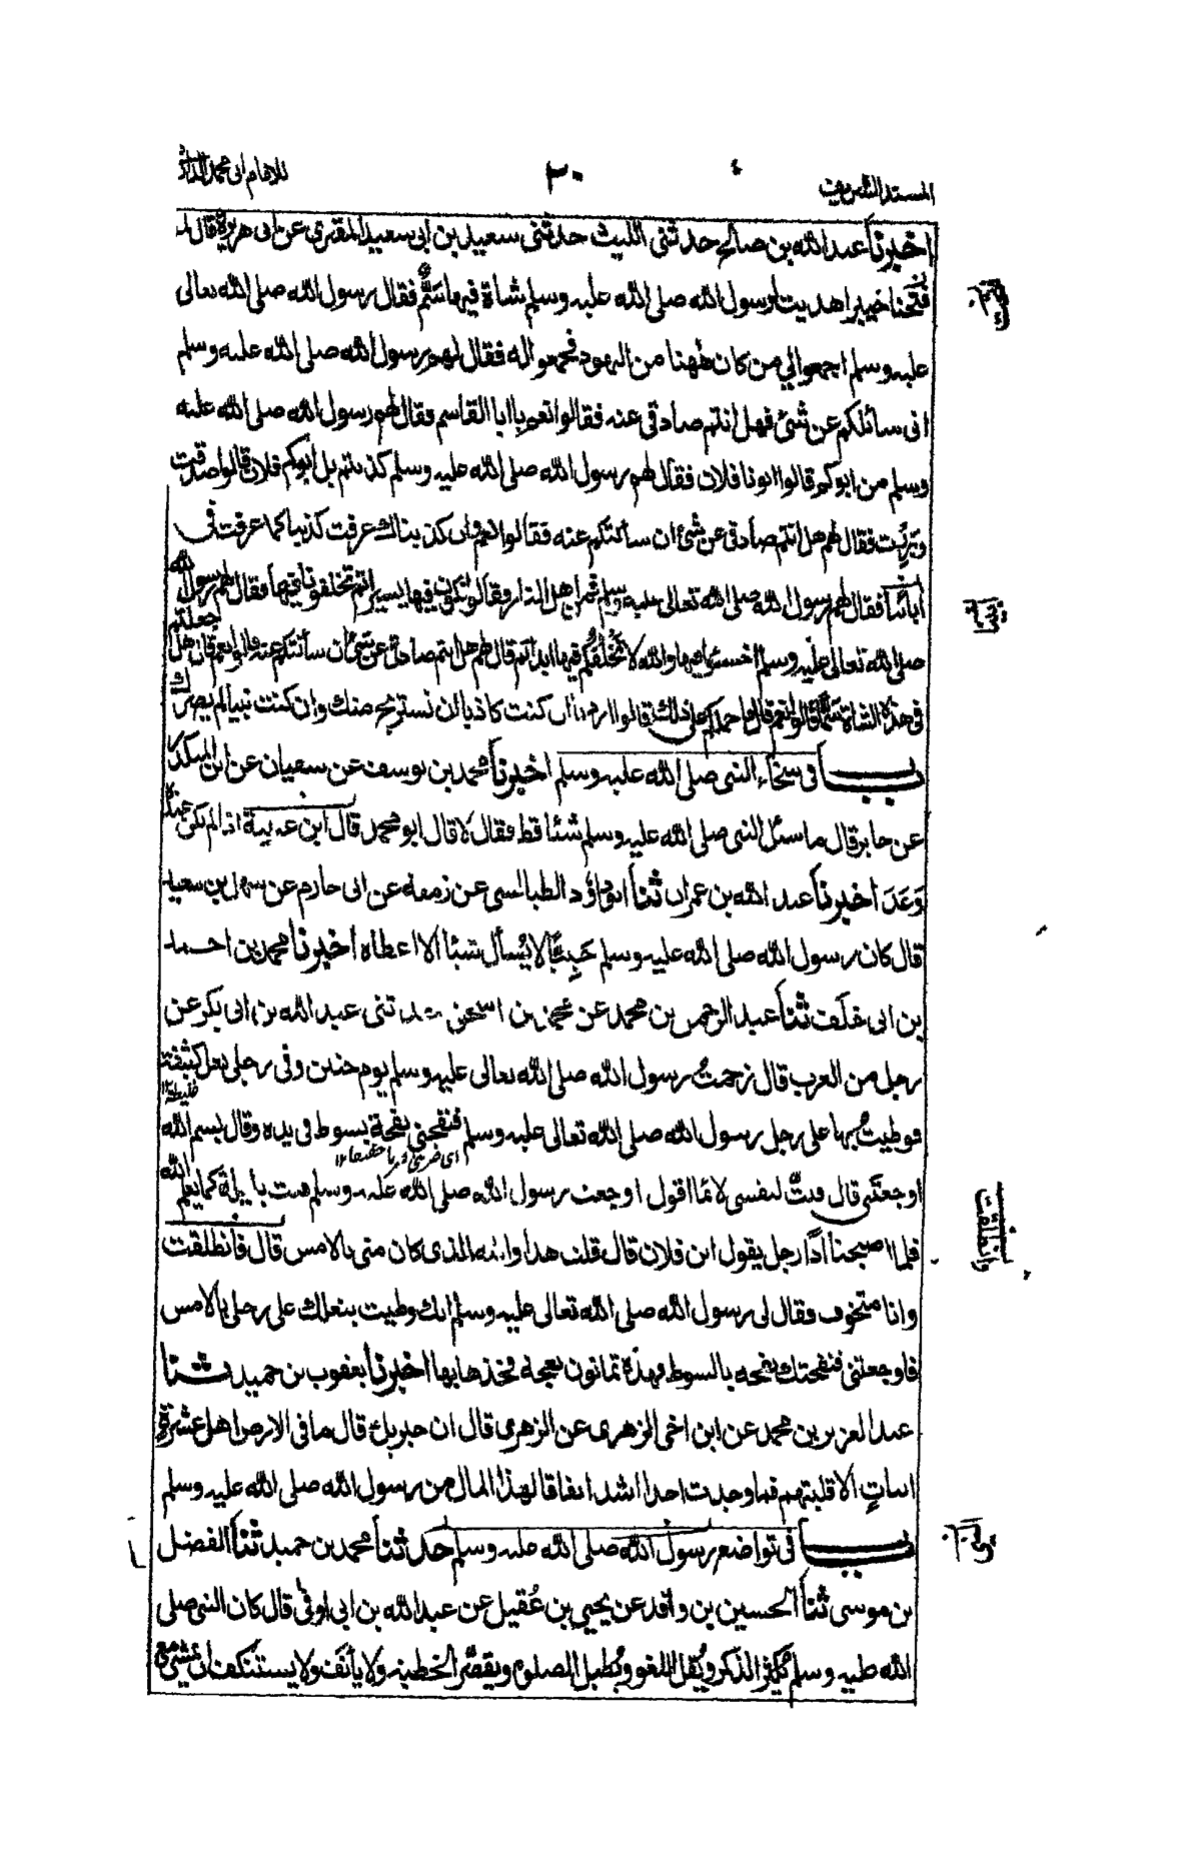 المسند الشريف ٣٠ للامام ابى محمد الدارمى
اخبرنا عبد الله بن صالح حدثنى الليث حدثنى سعيد بن ابى سعيد المقبرى عن ابى هريرة قال لما
فتحنا خيبر اهديت لرسول الله صلى الله عليه وسلم شاة فيها سَمٌّ فقال رسول الله صلى الله تعالى
عليه وسلم اجمعوا لي من كان ههنا من اليهود فجمعوا له فقال لهم رسول الله صلى الله عليه وسلم
انى سائلكم عن شئ فهل انتم صادقى عنه فقالوا نعم يا ابا القاسم فقال لهم رسول الله صلى الله عليه
وسلم من ابوكم قالوا ابونا فلان فقال لهم رسول الله صلى الله عليه وسلم كذبتم بل ابوكم فلان قالوا صدقت
وبَرِرْت فقال لهم هل انتم صادقى عن شئ ان سألتكم عنه فقالوا نعم وان كذبناك عرفت كذبنا كما عرفت فى
ابائنا فقال لهم رسول الله صلى الله تعالى عليه وسلم فمن اهل النار فقالوا نكون فيها يسيرا ثم تخلفونا فيها فقال لهم رسول الله
صلى الله تعالى عليه وسلم اخسئوا فيها والله لا نَخْلُفُكم فيها ابدا ثم قال لهم هل انتم صادقى عن شئ ان سألتكم عنه قالوا نعم قال هل جعلتم
فى هذه الشاة سَمًّا قالوا نعم قال ما حملكم على ذلك قالوا اردنا ان كنت كاذبا ان نستريح منك وان كنت نبيا لم يضرك
باب فى سخاء النبى صلى الله عليه وسلم اخبرنا محمد بن يوسف عن سفيان عن ابن المنكدر
عن جابر قال ما سئل النبى صلى الله عليه وسلم شئا قط فقال لا قال ابو محمد قال ابن عيينة اذا لم يكن عنده
وَعَدَ اخبرنا عبد الله بن عمران ثنا ابو داؤد الطيالسى عن زمعة عن ابى حازم عن سهل بن سعد
قال كان رسول الله صلى الله عليه وسلم حَيِيًّا لا يُسأل شيئا الا اعطاه اخبرنا محمد بن احمد
بن ابى خلف ثنا عبد الرحمن بن محمد عن محمد بن اسحق حدثنى عبد الله بن ابى بكر عن
رجل من العرب قال زحمتُ رسول الله صلى الله تعالى عليه وسلم يوم حنين وفى رجلى نعل كثيفة
غليظة١٢
فوطيت بها على رجل رسول الله صلى الله تعالى عليه وسلم فنفحنى نفحة بسوط فى يده وقال بسم الله
اوجعتنى قال فبتُّ لنفسى لائما اقول اوجعت رسول الله صلى الله عليه وسلم فبت بليلة كما يعلم الله
فلما اصبحنا اذا رجل يقول اين فلان قال قلت هذا والله الذى كان منى بالامس قال فانطلقت
وانا متخوف فقال لى رسول الله صلى الله تعالى عليه وسلم انك وطيت بنعلك على رجلى بالامس
فاوجعتنى فنفحتك نفحة بالسوط فهذه ثمانون نعجة فخذها بها اخبرنا يعقوب بن حميد ثنا
عبد العزيز بن محمد عن ابن اخى الزهرى عن الزهرى قال ان جبريل قال ما فى الارض اهل عشرة
ابياتٍ الا قلبتهم فما وجدت احدا اشد انفاقا لهذا المال من رسول الله صلى الله عليه وسلم
باب فى تواضع رسول الله صلى الله عليه وسلم حدثنا محمد بن حميد ثنا الفضل
بن موسى ثنا الحسين بن واقد عن يحيى بن عُقيل عن عبد الله بن ابى اوفى قال كان النبى صلى
الله عليه وسلم يُكثر الذكر ويُقل اللغو ويُطيل الصلوة ويقصّر الخطبة ولا يأنف ولا يستنكف ان يمشى مع